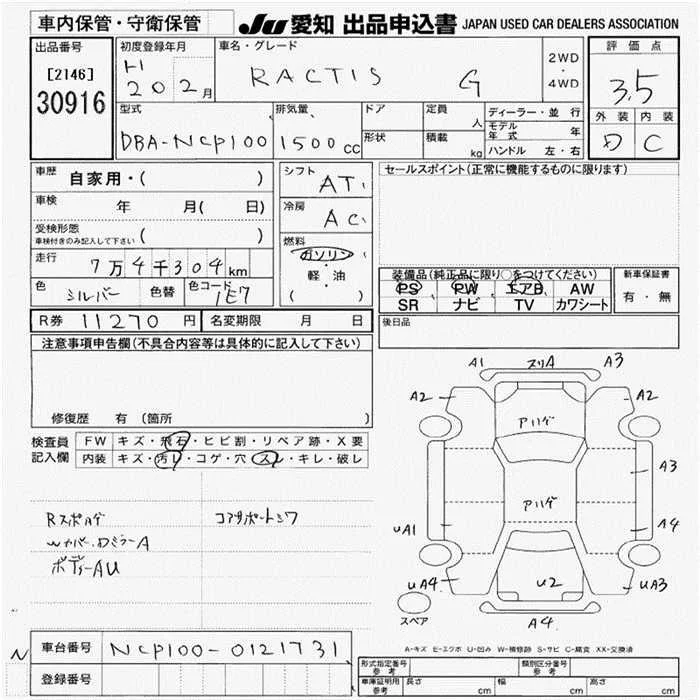 車内保管・守衛保管
JU 愛知 出品申込書 JAPAN USED CAR DEALERS ASSOCIATION
出品番号
[2146]
30916
初度登録年月
H
20 2月
車名・グレード
RACTIS G
2WD
・
4WD
評価点
3.5
外装 内装
D C
型式
DBA-NCP100
排気量
1500cc
ドア
形状
定員
人
積載
kg
ディーラー・並行
モデル年式 年
ハンドル 左・右
車歴 自家用・( )
車検 年 月( 日)
受検形態
車検付きのみ記入して下さい ( )
走行 7万4千304km
色 シルバー 色替 色コード 1E7
シフト AT
冷房 AC
燃料
ガソリン
・
軽・油
( )
セールスポイント(正常に機能するものに限ります)
装備品(純正品に限り○をつけてください)
PS PW エアB AW
SR ナビ TV カワシート
新車保証書
有・無
R券 11270円 名変期限 月 日
後日品
注意事項申告欄(不具合内容等は具体的に記入して下さい)
修復歴 有(箇所 )
検査員記入欄
FW キズ・飛石・ヒビ割・リペア跡・X要
内装 キズ・汚レ・コゲ・穴・スレ・キレ・破レ
Rスポハゲ
ボディーAU
A1 スリA A3
A2 A2
Aハゲ
A3
Aハゲ
UA1 A4
UA4 U2 UA3
A4
スペア
A-キズ E-エクボ U-凹み W-補修跡 S-サビ C-腐食 XX-交換済
N
車台番号 NCP100-0121731
登録番号
形式指定番号
参考
類別区分番号
参考
車庫証明用
参考
長さ cm 幅 cm 高さ cm